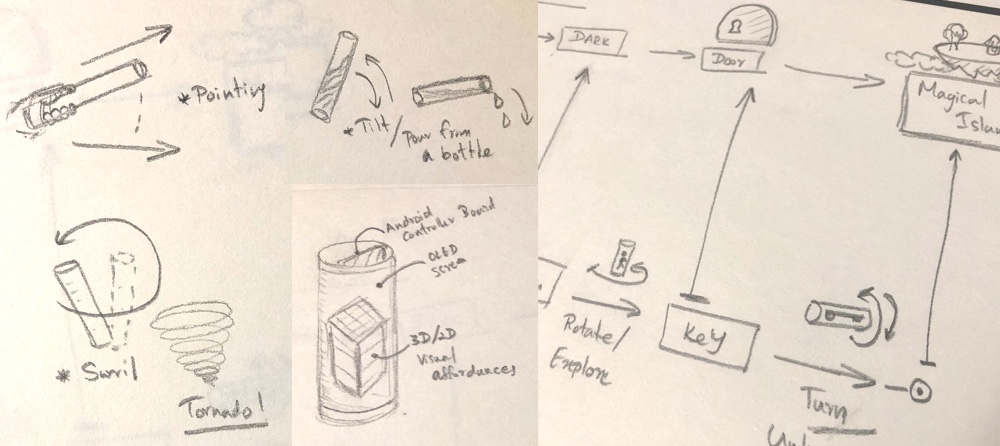 * Pointing
* Tilt/
Pour from
a bottle
* Swril
Tornado!
Android
Controller Board
OLED
Screen
3D/2D
Visual
affordances
DARK
Door
Magical
Rotate/
Explore
Key
Turn